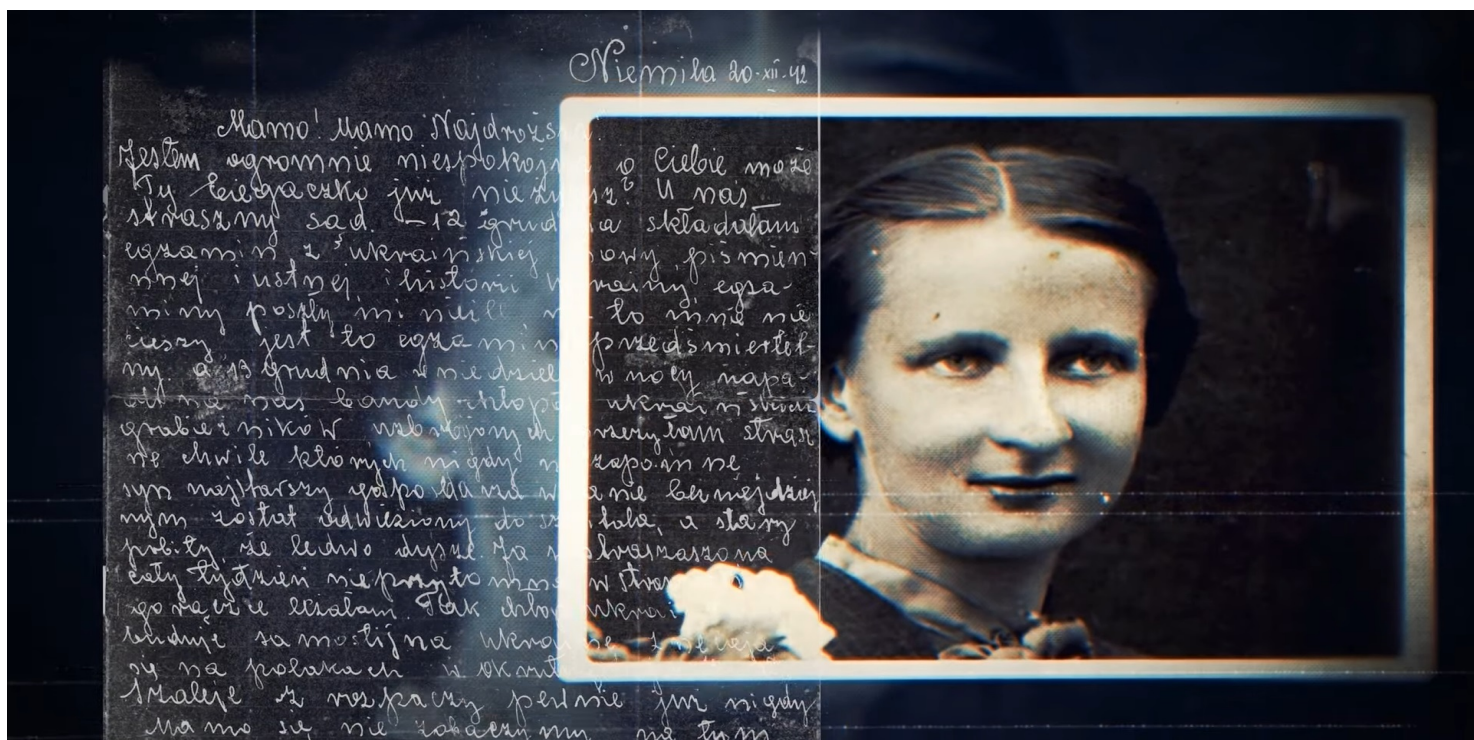 Niemila 20-XII-42
Mamo! Mamo Najdroższa
Jestem ogromnie niespokojna o Ciebie może
Ty biedaczko już nie żyjesz? U nas
straszny sąd. -12 grudnia składałam
egzamin z ukraińskiej mowy, piśmien-
nnej i ustnej, i historii Ukrainy egza-
miny poszły mi nieźle to mnie nie
cieszy jest to egzamin przedśmiertel-
ny. a 13 grudnia w niedziele w nocy napa-
na nas bandy ukraińskich
grabieżników uzbrojonych przeżyłam strasz
ne chwile których nigdy nie zapomne
syn najstarszy gospodarza w stanie beznajdziej
nym został odwieziony do szpitala, a stary
pobity że ledwo dysze. Ja
cały tydzień nieprzytomna w
gorączce leżałam Tak
buduje samostijna
się na polakach w
szaleje z rozpaczy pewnie już nigdy
Mamo się nie zobaczymy na tym